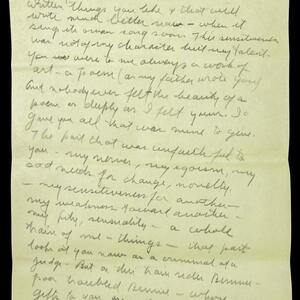 written things you like & that will
write much better now — when it
sings its own song soon. The sensitiveness
was not of my character but my talent.
You were to me always a work of
art — a poem (as my father wrote you)
And nobody ever felt the beauty of a
poem as deeply as I felt yours. I
gave you all that was mine to give.
The part that was unfaithful to
you — my nerves, my egoism, my
mad needs for change, novelty,
— my sensitiveness for another —
my weakness toward another —
my pity, sensuality — a whole
train of me — things — that part
looks at you now as a criminal at a
judge. But
poor
gifts to you